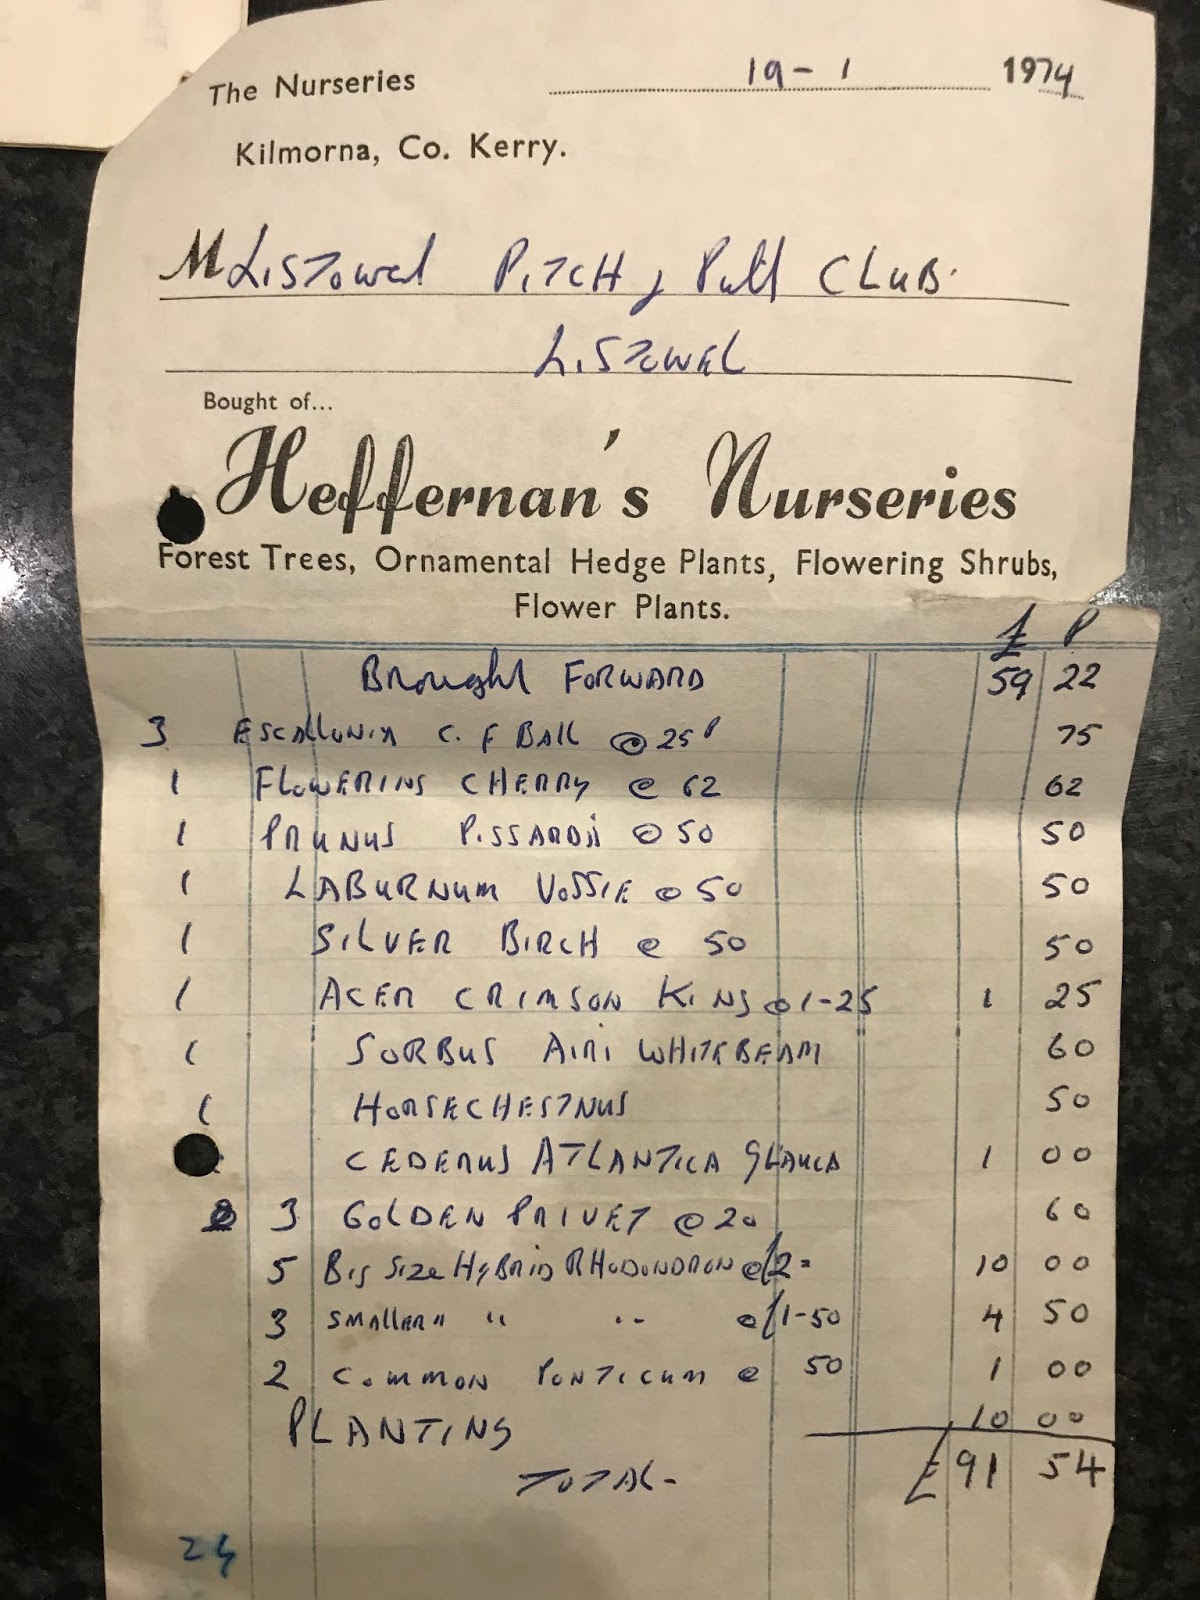 The Nurseries 19-1 1974
Kilmorna, Co. Kerry.
M Listowel Pitch, Putt CLUB.
LISTOWEL
Bought of...
Heffernan's Nurseries
Forest Trees, Ornamental Hedge Plants, Flowering Shrubs,
Flower Plants.
£ P
Brought FORWARD 59 22
3 ESCALLONIA C. F BALL @ 25P 75
1 FLOWERING CHERRY @ 62 62
1 PRUNUS PISSARDII @ 50 50
1 LABURNUM VOSSIE @ 50 50
1 SILVER BIRCH @ 50 50
1 ACER CRIMSON KING @ 1-25 1 25
1 SORBUS AIRI WHITEBEAM 60
1 HORSECHESTNUS 50
CEDERUS ATLANTICA GLAUCA 1 00
3 GOLDEN PRIVET @ 20 60
5 BIG SIZE HYBRID RHODONDRON @ £2= 10 00
3 SMALLER " " " @ £1-50 4 50
2 COMMON PONTICUM @ 50 1 00
PLANTING 10 00
TOTAL- £91 54
24